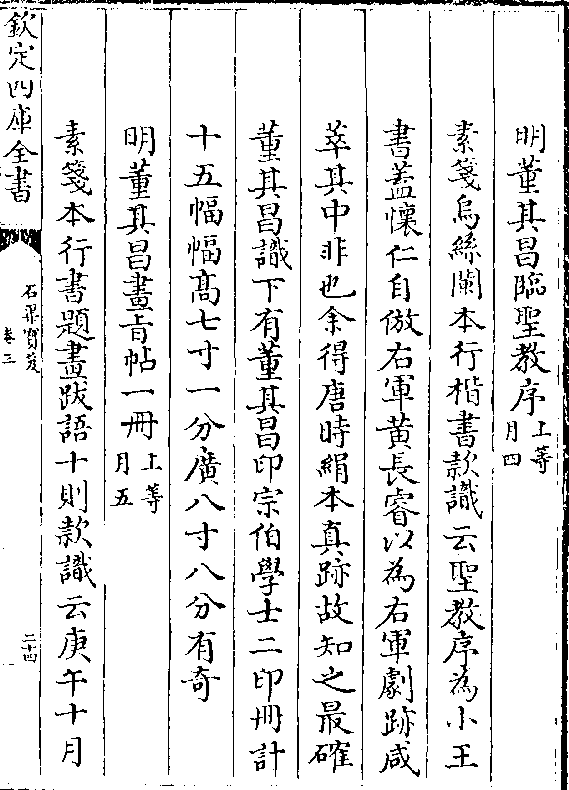 明董其昌臨聖教序上等月四
素箋烏絲闌本行楷書款識云聖教序為小王
書蓋懷仁自倣右軍黄長睿以為右軍劇跡咸
萃其中非也余得唐時絹本真跡故知之最確
董其昌識下有董其昌印宗伯學士二印冊計
十五幅幅髙七寸一分廣八寸八分有奇
明董其昌畫旨帖一冊上等月五
素箋本行書題畫跋語十則款識云庚午十月
欽定四庫全書
石渠寳笈
卷三
二十四